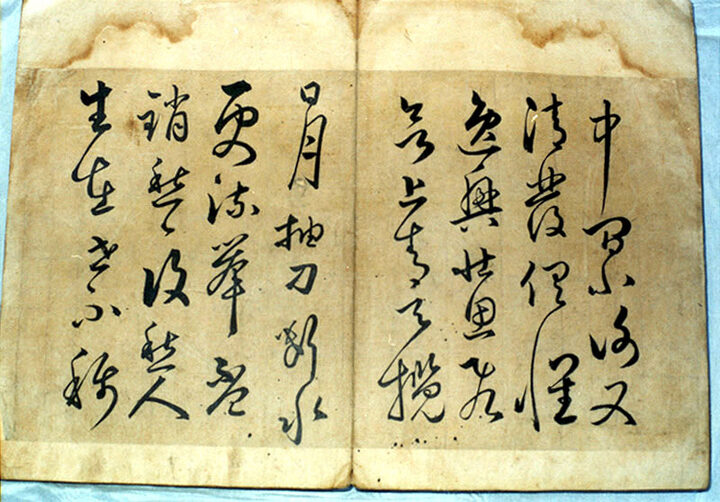 中間小謝又
清發俱懷
逸興壯思飛
欲上青天攬
日月抽刀斷水
更流舉盃
銷愁々復愁人
生在世不稱